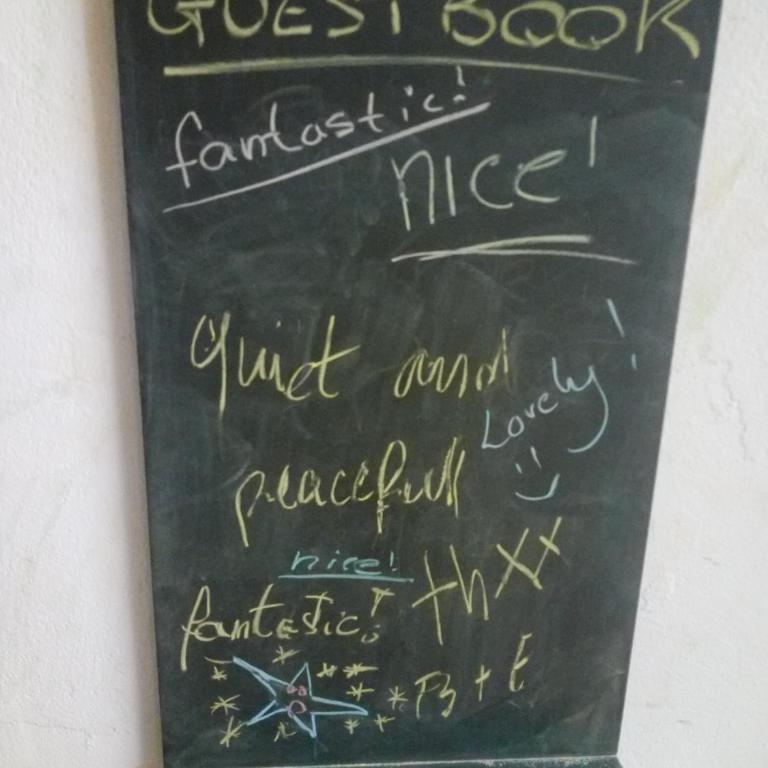 GUEST BOOK
fantastic!
nice!
quiet and
Lovely!
peacefull
nice!
thxx
fantastic!
B + E